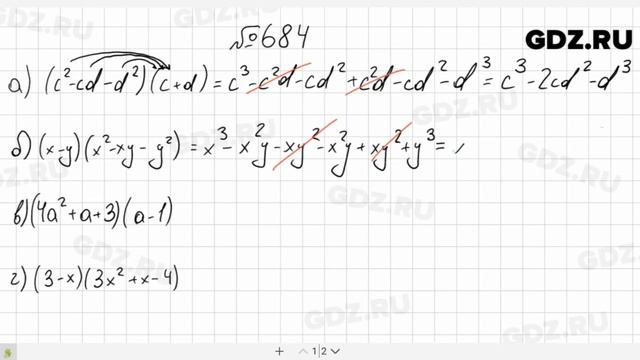 №684
GDZ.RU
а) (c²-cd-d²)(c+d) = c³-c²d-cd²+c²d-cd²-d³ = c³-2cd²-d³
б) (x-y)(x²-xy-y²) = x³-x²y-xy²-x²y+xy²+y³ =
в) (4a²+a+3)(a-1)
г) (3-x)(3x²+x-4)
GDZ.RU
GDZ.RU
GDZ.RU
GDZ.RU
GDZ.RU
GDZ.RU
+ 1|2